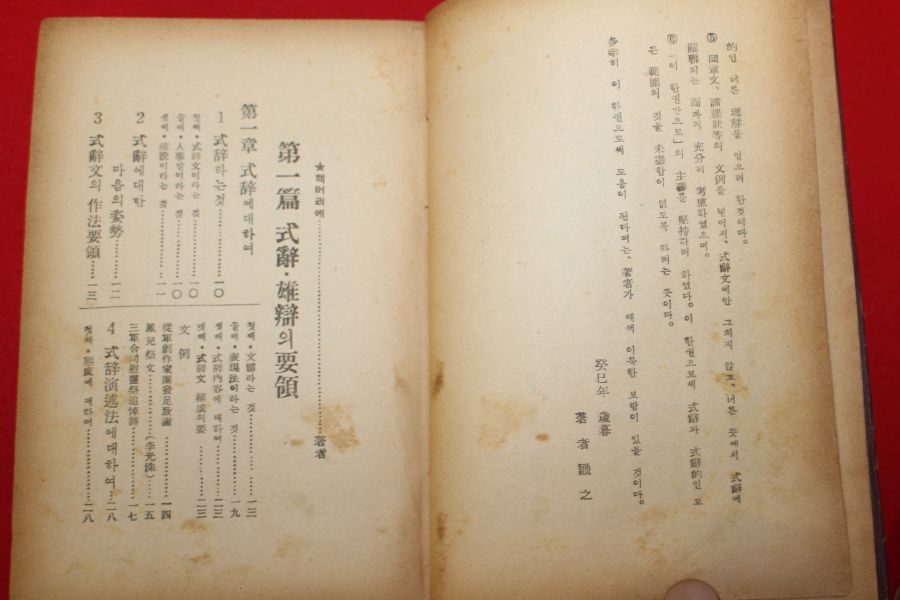 的인 너른 理解를 얻으려 한것이다。
⑤ 回章文、請牒狀等의 文例를 넣어서、式辭文에만 그치지 않고、너른 뜻에서 式辭에
關聯되는 面까지 充分히 考慮하였으며。
⑥ 「이 한권만으로」의 主義를 堅持하려 하였다。이 한권으로써 式辭와 式辭的인 모
든 範圍의 것을 未盡함이 없도록 하려는 뜻이다。
多幸히 이 한권으로써 도움이 된다며는、著者가 애써 이룩한 보람이 있을 것이다。
癸巳年 歲暮
著者 識之
★책머리에……著者
第一篇 式辭・雄辯의 要領
第一章 式辞에대하여
1 式辞라는것……一〇
첫째・式辞文이라는 것……一〇
둘째・人事말이라는 것……一〇
셋째・演說이라는 것……一一
2 式辭에대한
마음의 姿勢……一二
3 式辭文의 作法要領……一三
첫째・文體라는 것……一三
둘째・表現法이라는 것……一九
셋째・式辞內容에 대하여……二三
넷째・式辞文 構成의 要……二三
文例
從軍劇作家團發足致謝……一四
鳳兒祭文……(李光洙)……一五
三軍合同慰靈祭追悼辞……一七
4 式辞演述法에대하여……二八
첫째・態度에 대하여……二八